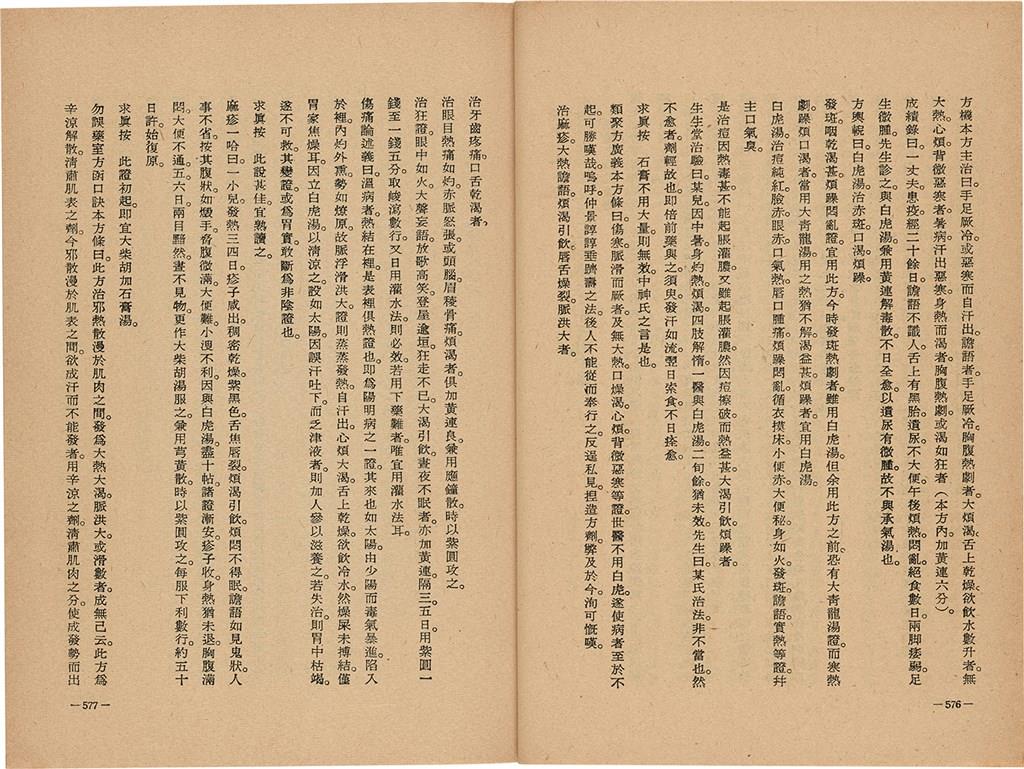 方機本方主治曰手足厥冷或惡寒而自汗出譫語者手足厥冷胸腹熱劇者大煩渴舌上乾燥欲飲水數升者無
大熱心煩背微惡寒者暑病汗出惡寒身熱而渴者胸腹熱劇或渴如狂者(本方內加黃連六分)。
成績錄曰一丈夫患疫經二十餘日譫語不識人舌上有黑胎遺尿不大便午後煩熱悶亂絕食數日兩脚痿弱足
生微腫先生診之與白虎湯兼用黃連解毒散不日全愈以遺尿有微腫故不與承氣湯也。
方輿輗曰白虎湯治赤斑口渴煩躁
發斑咽乾渴甚煩躁悶亂證宜用此方今時發斑熱劇者雖用白虎湯但余用此方之前恐有大青龍湯證而寒熱
劇躁煩口渴者當用大青龍湯用之熱猶不解渴益甚煩躁者宜用白虎湯。
白虎湯治痘純紅臉赤眼赤口氣熱唇口腫痛煩躁悶亂循衣摸床小便赤大便秘身如火發斑譫語實熱等證幷
主口氣臭。
是治痘因熱毒甚不能起脹灌膿又雖起脹灌膿然因痘擦破而熱益甚大渴引飲煩躁者。
生生堂治驗曰某兒因中暑身灼熱煩渴四肢解惰一醫與白虎湯二旬餘猶未效先生曰某氏治法非不當也然
不愈者劑輕故也即倍前藥與之須臾發汗如流翌日索食不日痊愈。
求眞按 石膏不用大量則無效中神氏之言是也。
類聚方廣義本方條曰傷寒脈滑而厥者及無大熱口燥渴心煩背微惡寒等證世醫不用白虎遂使病者至於不
起可勝嘆哉嗚呼仲景諄諄垂躋壽之法後人不能從而奉行之反逞私見捏造方劑弊及於今洵可慨嘆。
治麻疹大熱譫語煩渴引飲唇舌燥裂脈洪大者。
—576—
治牙齒疼痛口舌乾渴者。
治眼目熱痛如灼赤脈怒張或頭腦眉稜骨痛煩渴者俱加黃連良兼用應鐘散時以紫圓攻之。
治狂證眼中如火大聲妄語放歌高笑登屋逾垣狂走不已大渴引飲晝夜不眠者亦加黃連隔三五日用紫圓一
錢至一錢五分取峻瀉數行又日用灌水法則必效若用下藥難者唯宜用灌水法耳。
傷痛論述義曰溫病者熱結在裡是表裡俱熱證也即爲陽明病之一證其來也如太陽由少陽而毒氣暴進陷入
於裡內灼外熏勢如燎原故脈浮滑洪大證則蒸蒸發熱自汗出心煩大渴舌上乾燥欲飲冷水然燥屎未搏結僅
胃家焦燥耳因立白虎湯以清涼之設如太陽因誤汗吐下而乏津液者則加人參以滋養之若失治則胃中枯竭。
遂不可救其變證或爲胃實敢斷爲非陰證也。
求眞按 此說甚佳宜熟讀之。
麻疹一哈曰一小兒發熱三四日疹子咸出稠密乾燥紫黑色舌焦唇裂煩渴引飲煩悶不得眠譫語如見鬼狀人
事不省按其腹狀如燬手脅腹微滿大便難小溲不利因與白虎湯盡十帖諸證漸安疹子收身熱猶未退胸腹滿
悶大便不通五六日兩目黯然晝不見物更作大柴胡湯服之兼用芎黃散時以紫圓攻之每服下利數行約五十
日許始復原。
求眞按 此證初起即宜大柴胡加石膏湯。
勿誤藥室方函口訣本方條曰此方治邪熱散漫於肌肉之間發爲大熱大渴脈洪大或滑數者成無己云此方爲
辛涼解散清肅肌表之劑今邪散漫於肌表之間欲成汗而不能發者用辛涼之劑清肅肌肉之分使成發勢而出
—577—